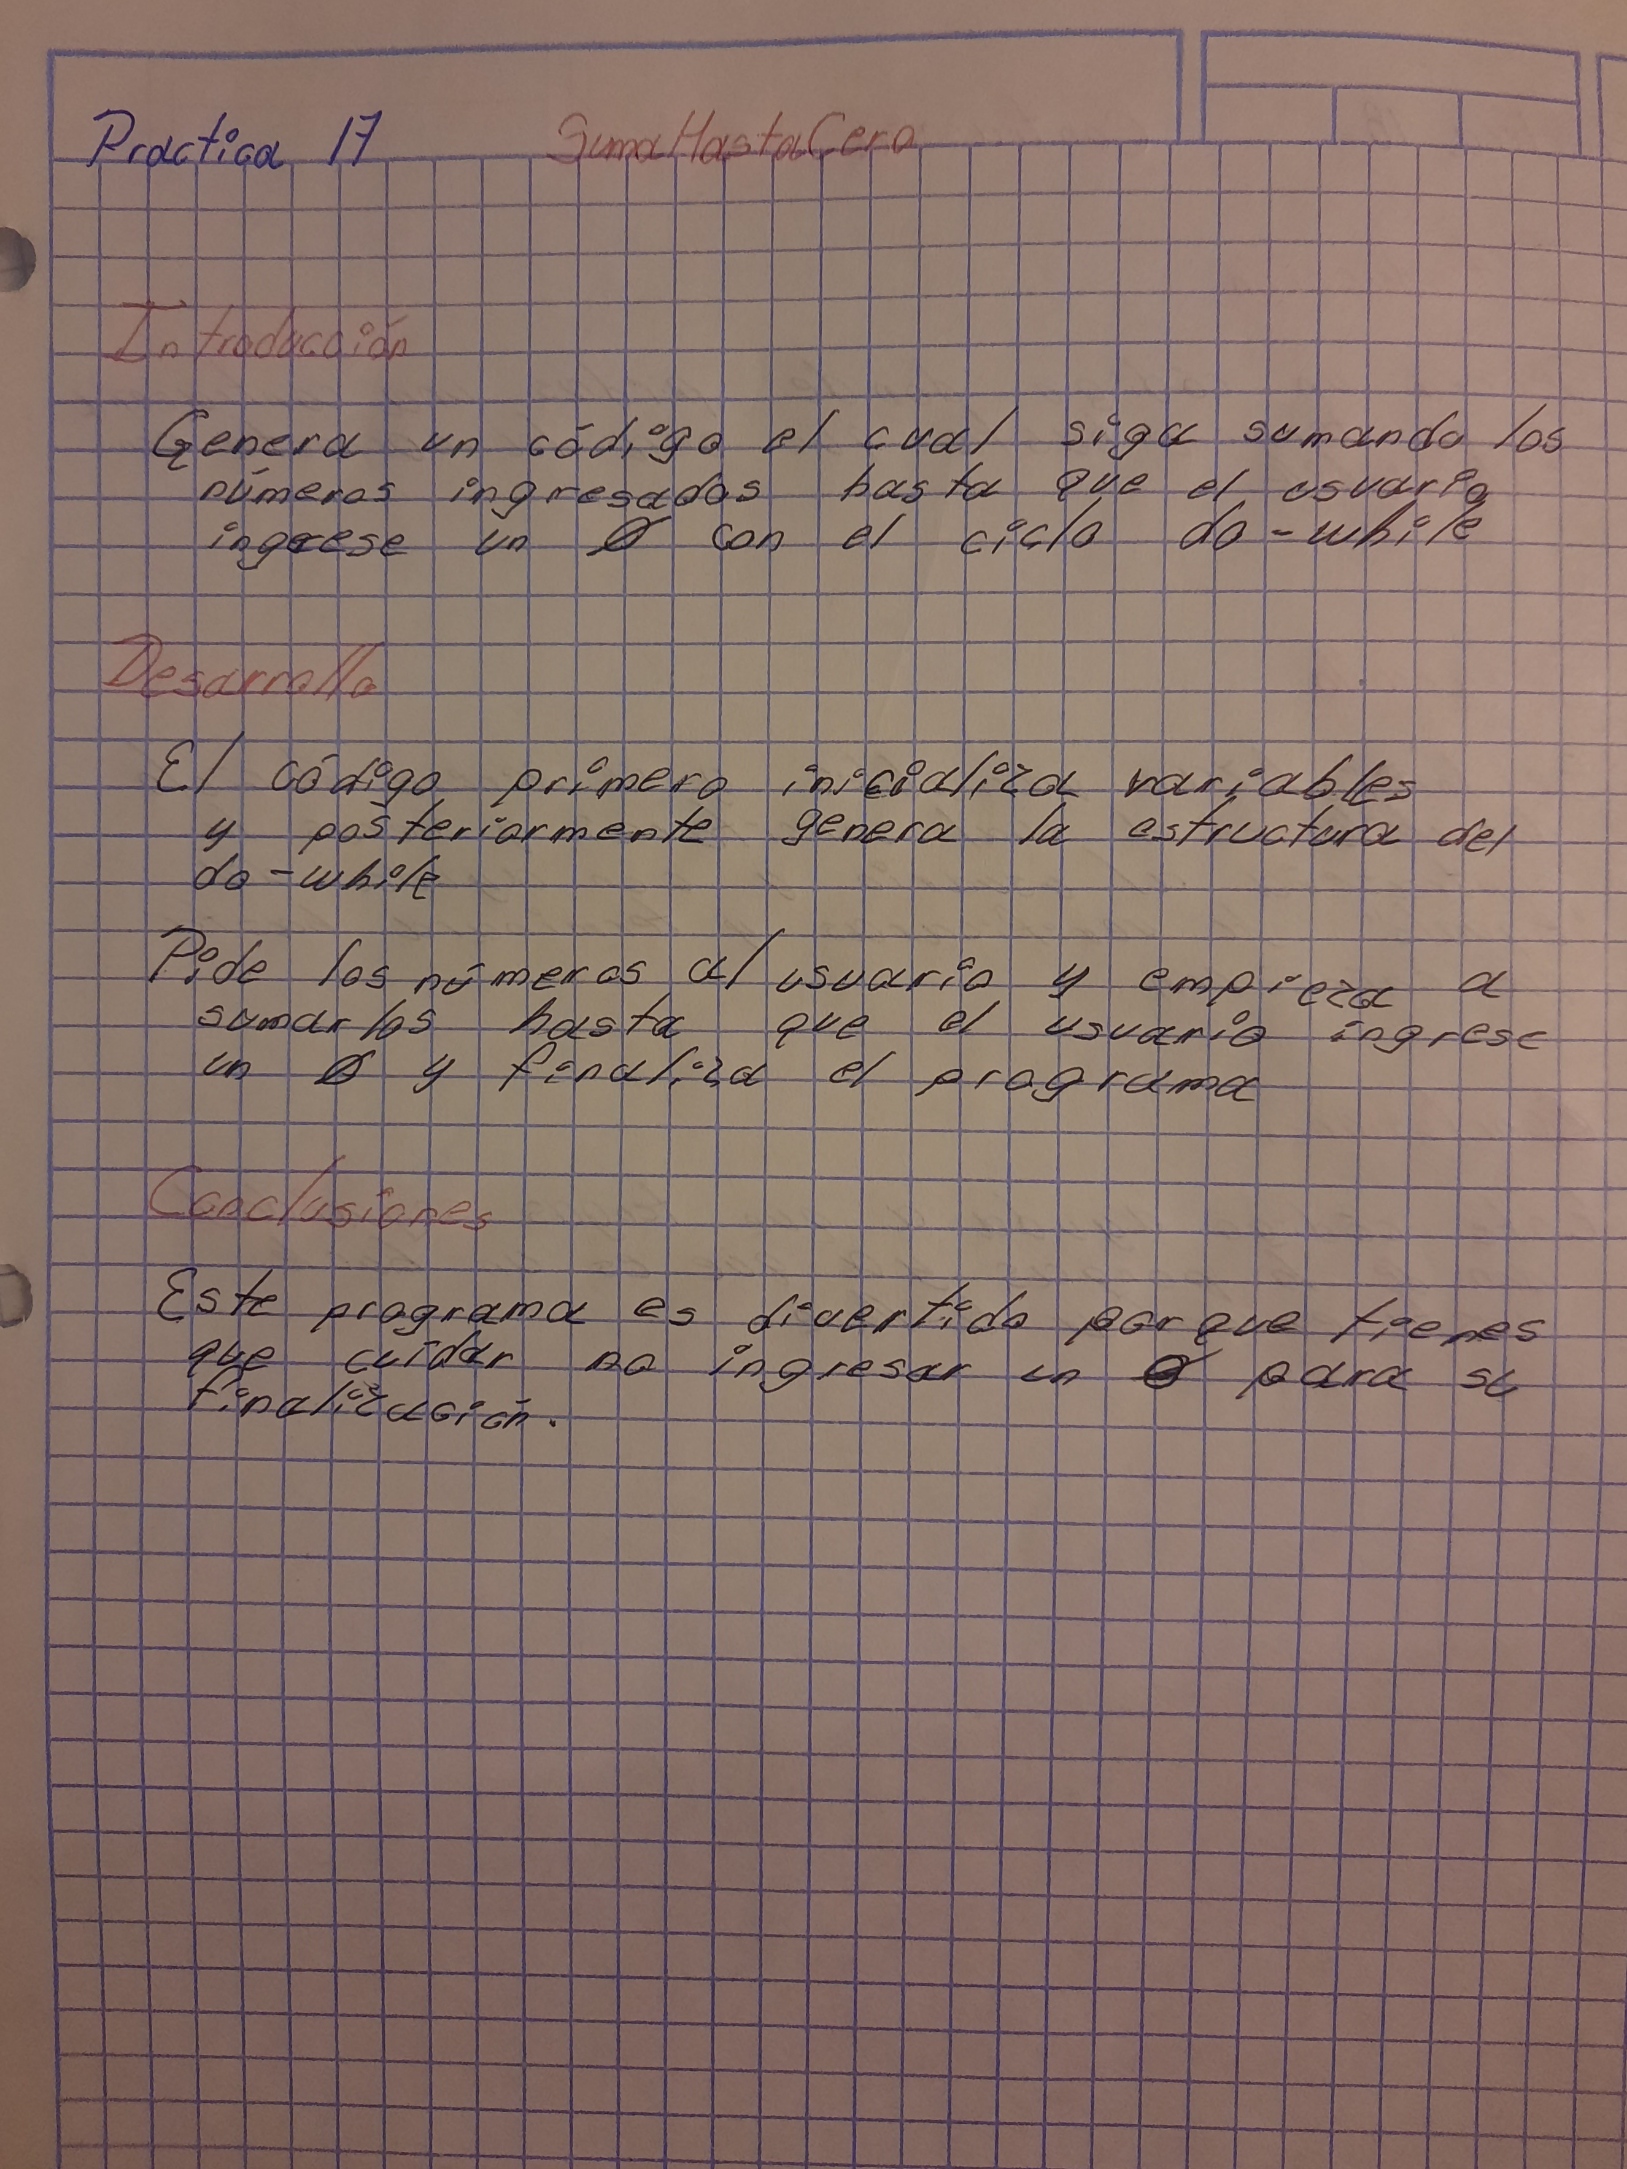 Practica 17 SumaHastaCero
Introducción
Genera un código el cual siga sumando los
números ingresados hasta que el usuario
ingrese un 0 con el ciclo do-while
Desarrollo
El código primero inicializa variables
y posteriormente genera la estructura del
do-while
Pide los números al usuario y empieza a
sumarlos hasta que el usuario ingrese
un 0 y finaliza el programa
Conclusiones
Este programa es divertido porque tienes
que cuidar no ingresar un 0 para su
finalización.